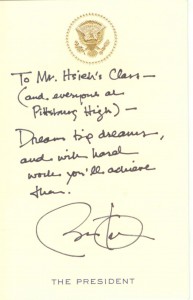 To Mr. Hsieh's Class—
(and everyone at
Pittsburg High)—
Dream big dreams,
and with hard
work you'll achieve
them.
THE PRESIDENT